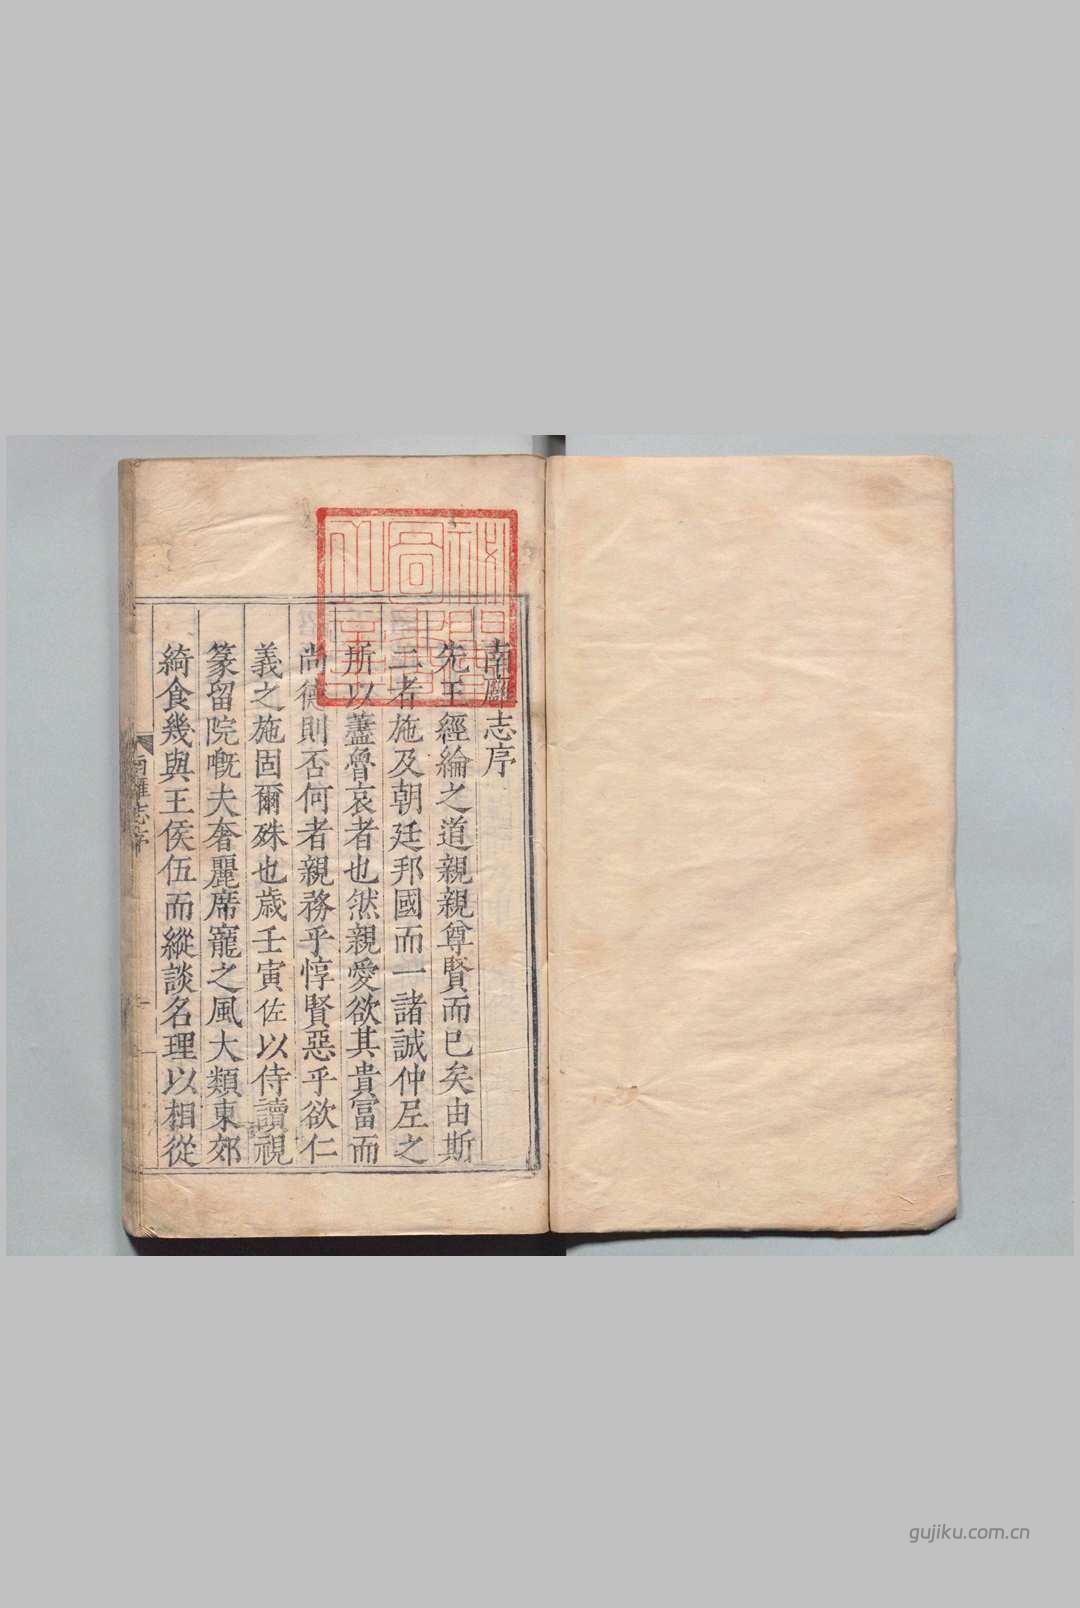 南雝志序
先王經綸之道親親尊賢而已矣由斯
二者施及朝廷邦國而一諸誠仲尼之
所以藎魯哀者也然親愛欲其貴富而
尚德則否何者親務乎惇賢惡乎欲仁
義之施固爾殊也歲壬寅佐以侍讀視
篆留院嘅夫奢麗席寵之風大類東郊
綺食幾與王侯伍而縱談名理以相從
南雝志序
一
gujiku.com.cn